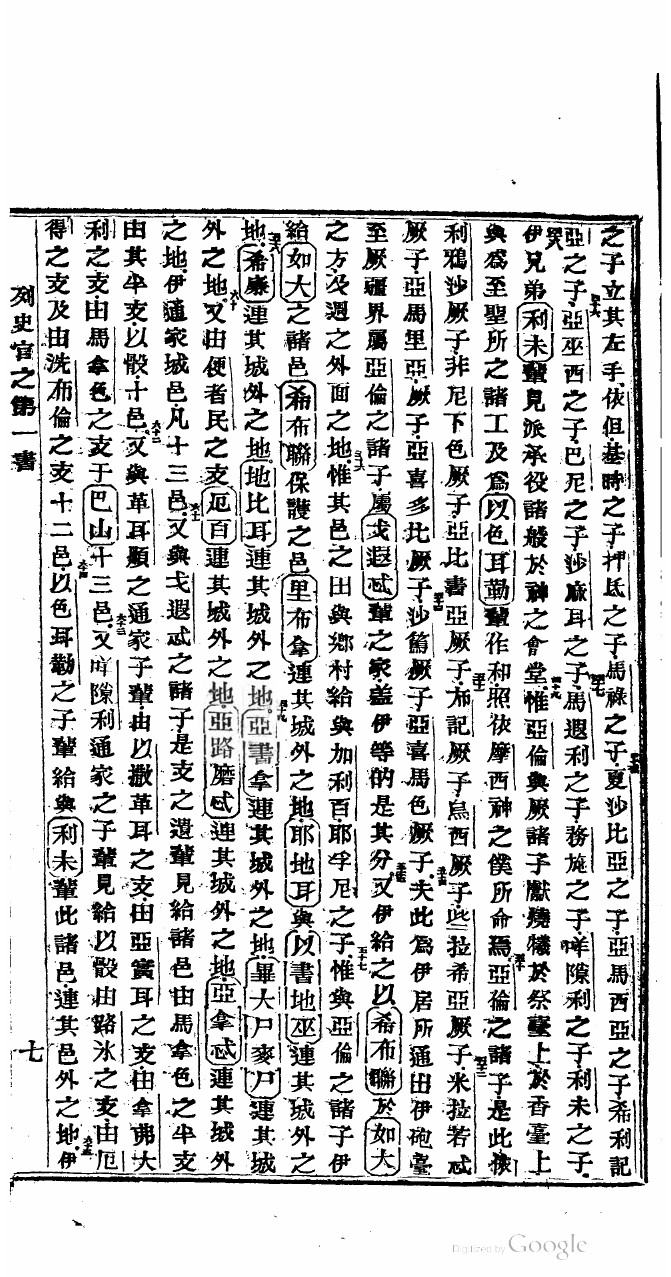 之子立其左手依但基時之子押氐之子馬祿之子夏沙比亞之子亞馬西亞之子希利記
亞之子亞巫西之子巴尼之子沙麻耳之子馬遐利之子務施之子咩隙利之子利未之子
伊兄弟利未輩見派承役諸般於神之會堂惟亞倫與厥諸子獻燒犧於祭臺上於香臺上
與為至聖所之諸工及為以色耳勒輩作和照依摩西神之僕所命焉亞倫之諸子是此依
利鴉沙厥子非尼下色厥子亞比書亞厥子布記厥子烏西厥子些拉希亞厥子米拉若忒
厥子亞馬里亞厥子亞喜多比厥子沙篤厥子亞喜馬色厥子夫此為伊居所通田伊砲臺
至厥疆界屬亞倫之諸子屬戈遐忒輩之家盖伊等的是其分又伊給之以希布聯於如大
之方及週之外面之地惟其邑之田與鄉村給與加利百耶孚尼之子惟與亞倫之諸子伊
給如大之諸邑希布聯保護之邑里布拿連其城外之地耶地耳與以書地巫連其城外之
地希廉連其城外之地地比耳連其城外之地亞書拿連其城外之地畢大尸麥尸連其城
外之地又由便者民之支厄百連其城外之地亞路磨忒連其城外之地亞拿忒連其城外
之地伊通家城邑凡十三邑又與戈遐忒之諸子是支之遺輩見給諸邑由馬拿色之半支
由其半支以骰十邑又與革耳順之通家子輩由以撒革耳之支由亞實耳之支由拿弗大
利之支由馬拿色之支于巴山十三邑又咩隙利通家之子輩見給以骰由路氷之支由厄
得之支及由洗布倫之支十二邑以色耳勒之子輩給與利未輩此諸邑連其邑外之地伊
列史官之第一書 七
Digitized by Google